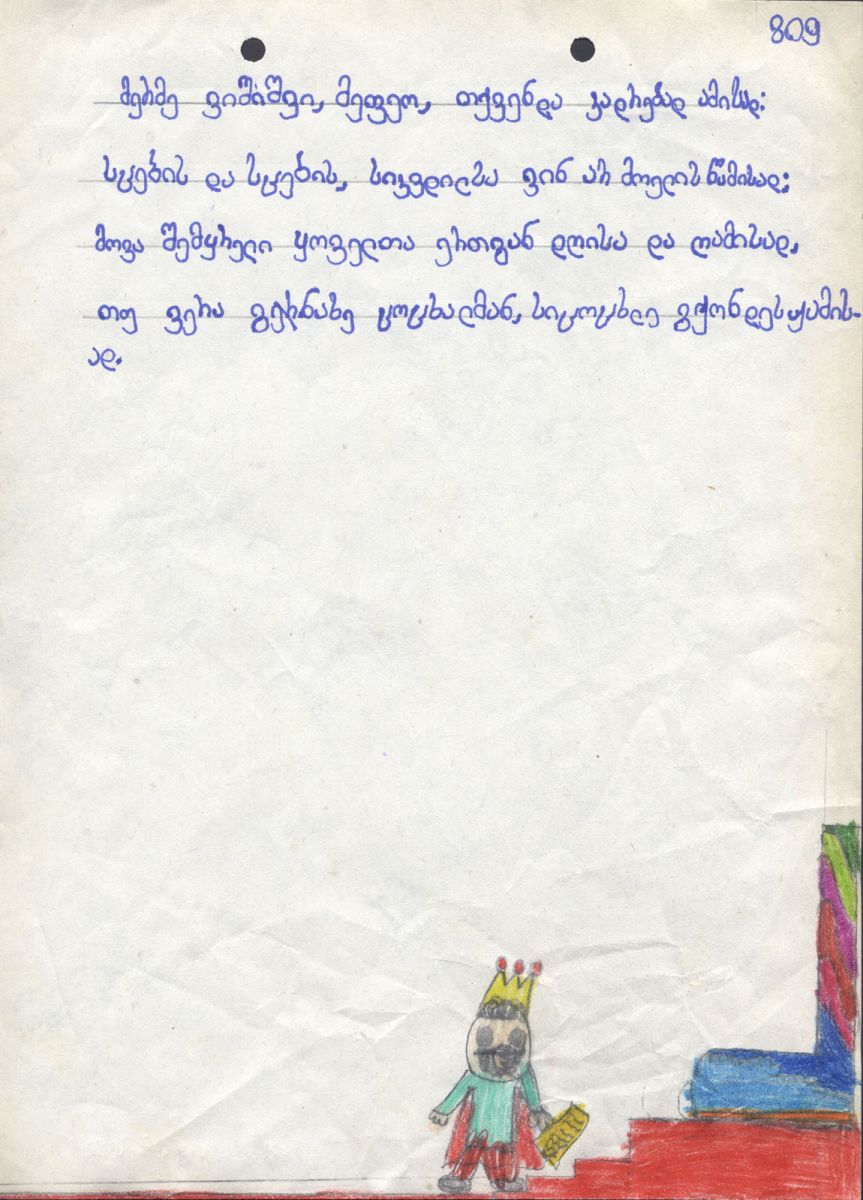 809
მერმე ვიშიშვი, მეფეო, თქვენდა კადრებად ამისად:
სცემის და სცემის, სიკვდილსა ვინ არ მოელის წამისად;
მოვა შემყრელი ყოველთა ერთგან დღისა და ღამისად,
თუ ვერა გერნახე ცოცხალმან, სიცოცხლე გქონდეს ჟამის-
ად.